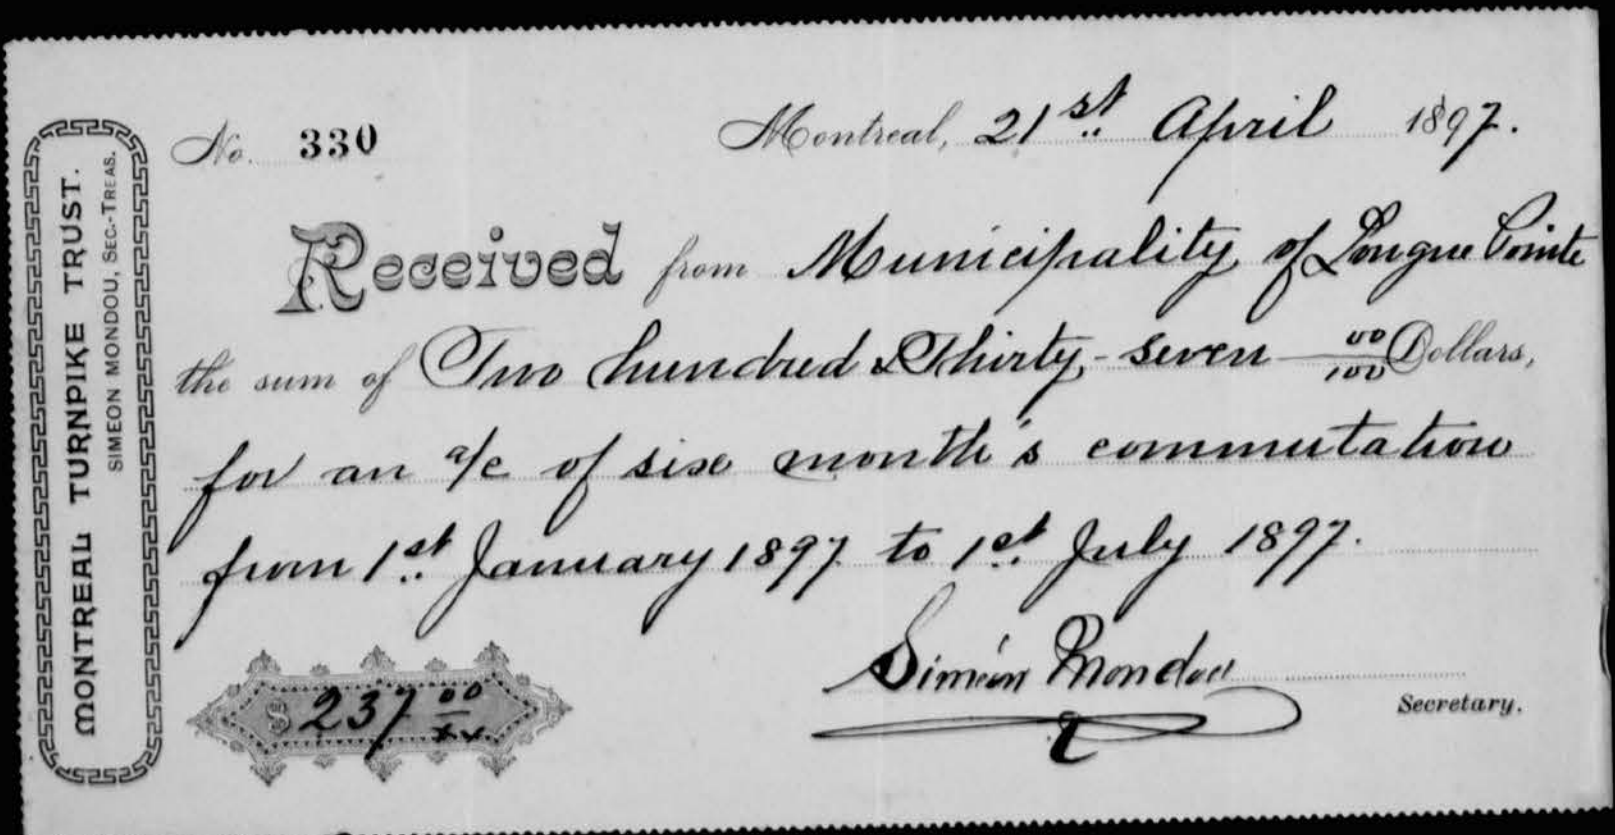 MONTREAL TURNPIKE TRUST.
SIMEON MONDOU, SEC.-TREAS.
No. 330
Montreal, 21st April 1897.
Received from Municipality of Longue Pointe
the sum of Two hundred & Thirty-seven 00/100 Dollars,
for an a/c of six month's commutation
from 1st January 1897 to 1st July 1897.
Siméon Mondou
Secretary.
$ 237 00/xx